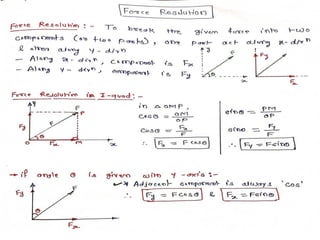 Force Resolution
Force Resolution :- To break the given force into two
components (or two parts), one part act along x-dirn
& other along y-dirn
- Along x-dirn, component is Fx
- Along y-dirn, component is Fy
y F
x
Fy F
Fx
Force Resolution in I-quad :-
y
F
P
Fy
θ
O Fx M x
in Δ OMP,
cosθ = OM/OP
cosθ = Fx/F
∴ Fx = F cosθ
sinθ = PM/OP
sinθ = Fy/F
∴ Fy = F sinθ
→ if angle θ is given with y-axis :-
Adjacent component is always 'cos'
∴ Fy = F cosθ & Fx = F sinθ
Fy
F
θ
Fx